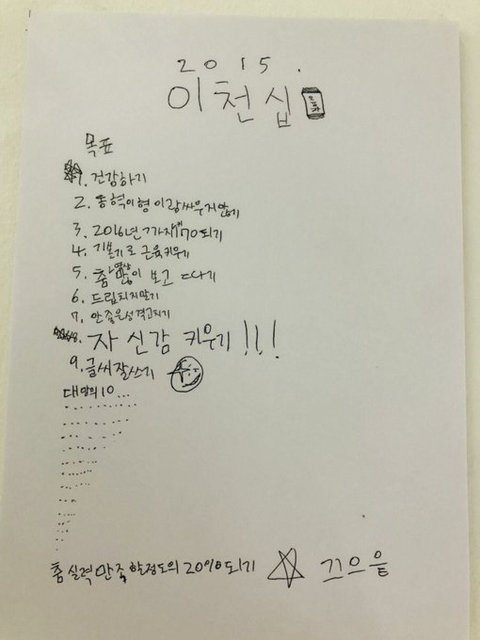 2015.
이천십
목표
1. 건강하기
2. 동혁이형이랑싸우지않기
3. 2016년까지170되기
4. 기본기로 근육키우기
5. 춤영상많이 보고 따기
6. 드립치지말기
7. 안좋은성격고치기
8. 자신감 키우기!!!
9. 글씨잘쓰기
대망의10...
춤실력만족할정도의200%되기 끄으읕